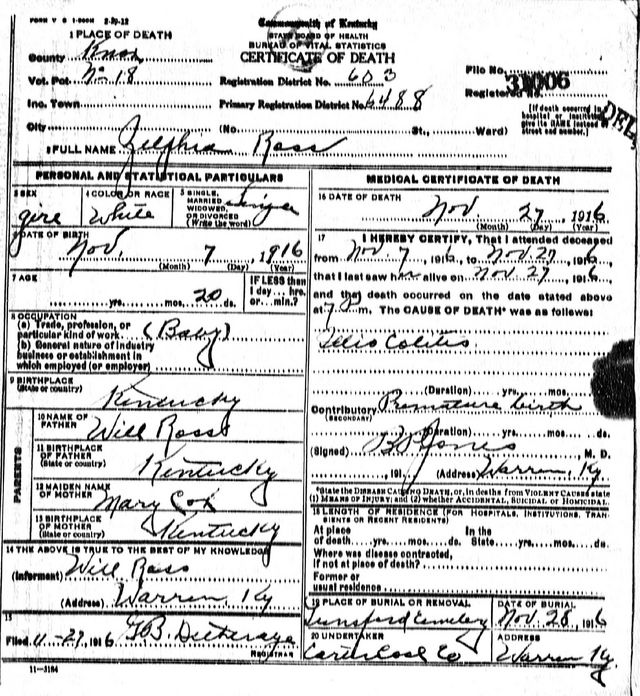 FORM V S 1-500M 2-20-12
Commonwealth of Kentucky
STATE BOARD OF HEALTH
BUREAU OF VITAL STATISTICS
CERTIFICATE OF DEATH
1 PLACE OF DEATH
County Knox
Vot. Pct. No 18
Inc. Town
City (No. St., Ward)
Registration District No. 603
Primary Registration District No. 6488
File No.
Registered No. 31006
[If death occurred in hospital or institution give its NAME instead of street and number.]
DEL
2 FULL NAME Zelphia Ross
PERSONAL AND STATISTICAL PARTICULARS
3 SEX girl
4 COLOR OR RACE White
5 SINGLE, MARRIED WIDOWED OR DIVORCED (Write the word) Single
6 DATE OF BIRTH Nov. 7 1916
(Month) (Day) (Year)
7 AGE yrs. mos. 20 ds.
IF LESS than 1 day... hrs. or... min.?
8 OCCUPATION
(a) Trade, profession, or particular kind of work (Baby)
(b) General nature of industry business or establishment in which employed (or employer)
9 BIRTHPLACE (State or country) Kentucky
PARENTS
10 NAME OF FATHER Will Ross
11 BIRTHPLACE OF FATHER (State or country) Kentucky
12 MAIDEN NAME OF MOTHER Mary Cox
13 BIRTHPLACE OF MOTHER (State or country) Kentucky
14 THE ABOVE IS TRUE TO THE BEST OF MY KNOWLEDGE
(Informant) Will Ross
(Address) Warren, Ky
15
Filed 11-27, 1916
REGISTRAR
11-3184
MEDICAL CERTIFICATE OF DEATH
16 DATE OF DEATH
Nov. 27, 1916
(Month) (Day) (Year)
17 I HEREBY CERTIFY, That I attended deceased
from Nov. 7, 1916, to Nov. 27, 1916,
that I last saw her alive on Nov. 27, 1916,
and that death occurred on the date stated above
at 7 m. The CAUSE OF DEATH* was as follows:
Ileo Colitis
(Duration) yrs. mos. ds.
Contributory (SECONDARY) Premature birth
(Duration) yrs. mos. ds.
(Signed) B P Jones M. D.
, 191 (Address) Warren, Ky
*State the DISEASE CAUSING DEATH, or, in deaths from VIOLENT CAUSES state
(1) MEANS OF INJURY; and (2) whether ACCIDENTAL, SUICIDAL or HOMICIDAL.
18 LENGTH OF RESIDENCE (FOR HOSPITALS, INSTITUTIONS, TRANSIENTS OR RECENT RESIDENTS)
At place of death yrs. mos. ds. In the State yrs. mos. ds.
Where was disease contracted,
if not at place of death?
Former or
usual residence
19 PLACE OF BURIAL OR REMOVAL Lunsford Cemetery
DATE OF BURIAL Nov. 28, 1916
20 UNDERTAKER Carter Coal Co
ADDRESS Warren Ky.